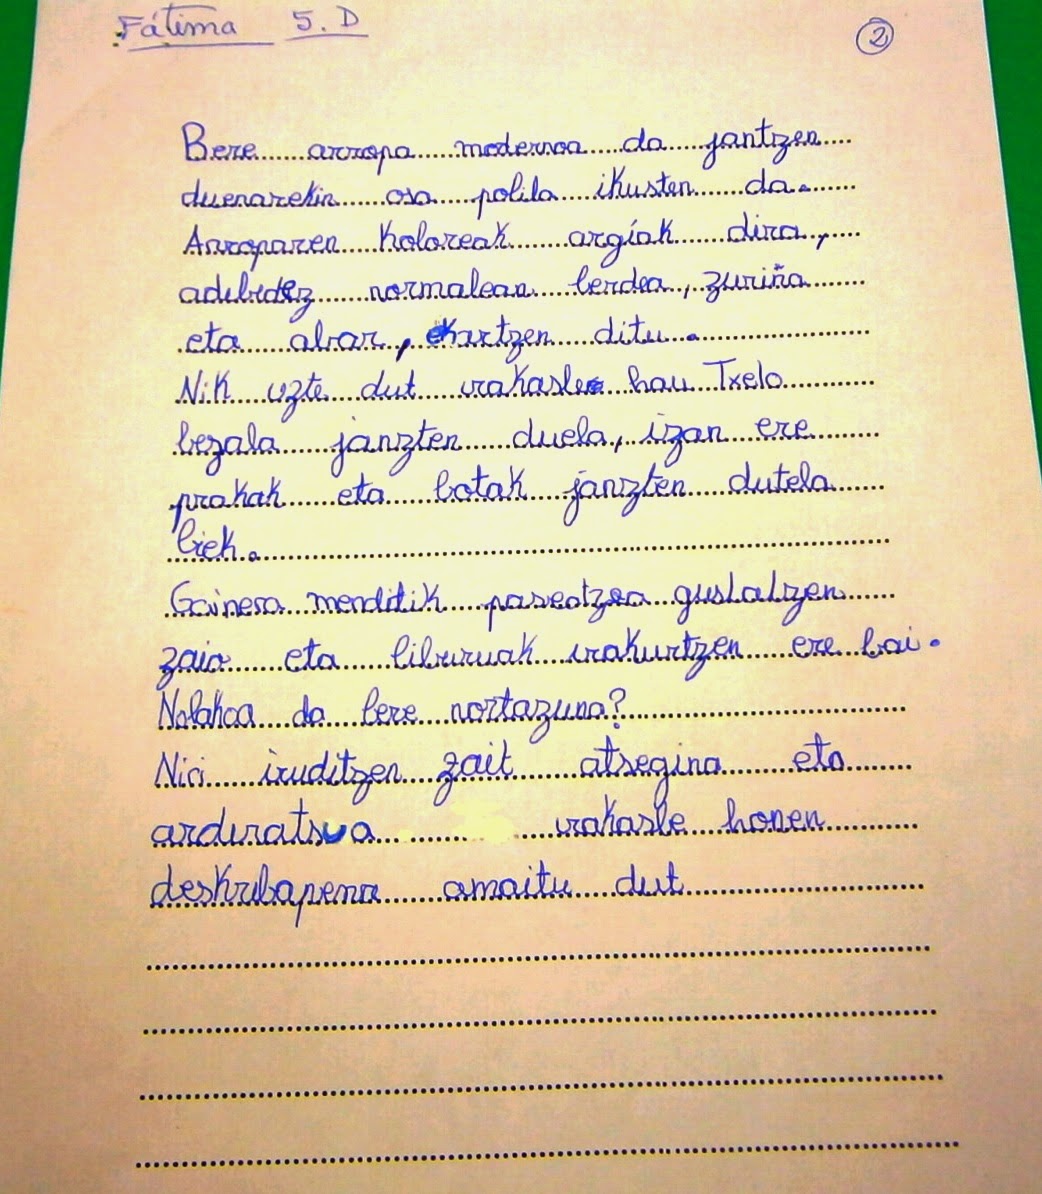 Fátima 5. D
2
Bere arropa modernoa da jantzen
duenarekin oso polita ikusten da.
Arroparen koloreak argiak dira,
adibidez normalean berdea, zuriña
eta abar, ekartzen ditu.
Nik uzte dut irakaslea hau Txelo
bezala janzten duela, izan ere
prakak eta botak janzten dutela
biek.
Gainera menditik paseatzea gustatzen
zaio eta liburuak irakurtzen ere bai.
Nolakoa da bere nortazuna?
Niri iruditzen zait atsegina eta
arduratsua irakasle honen
deskribapena amaitu dut